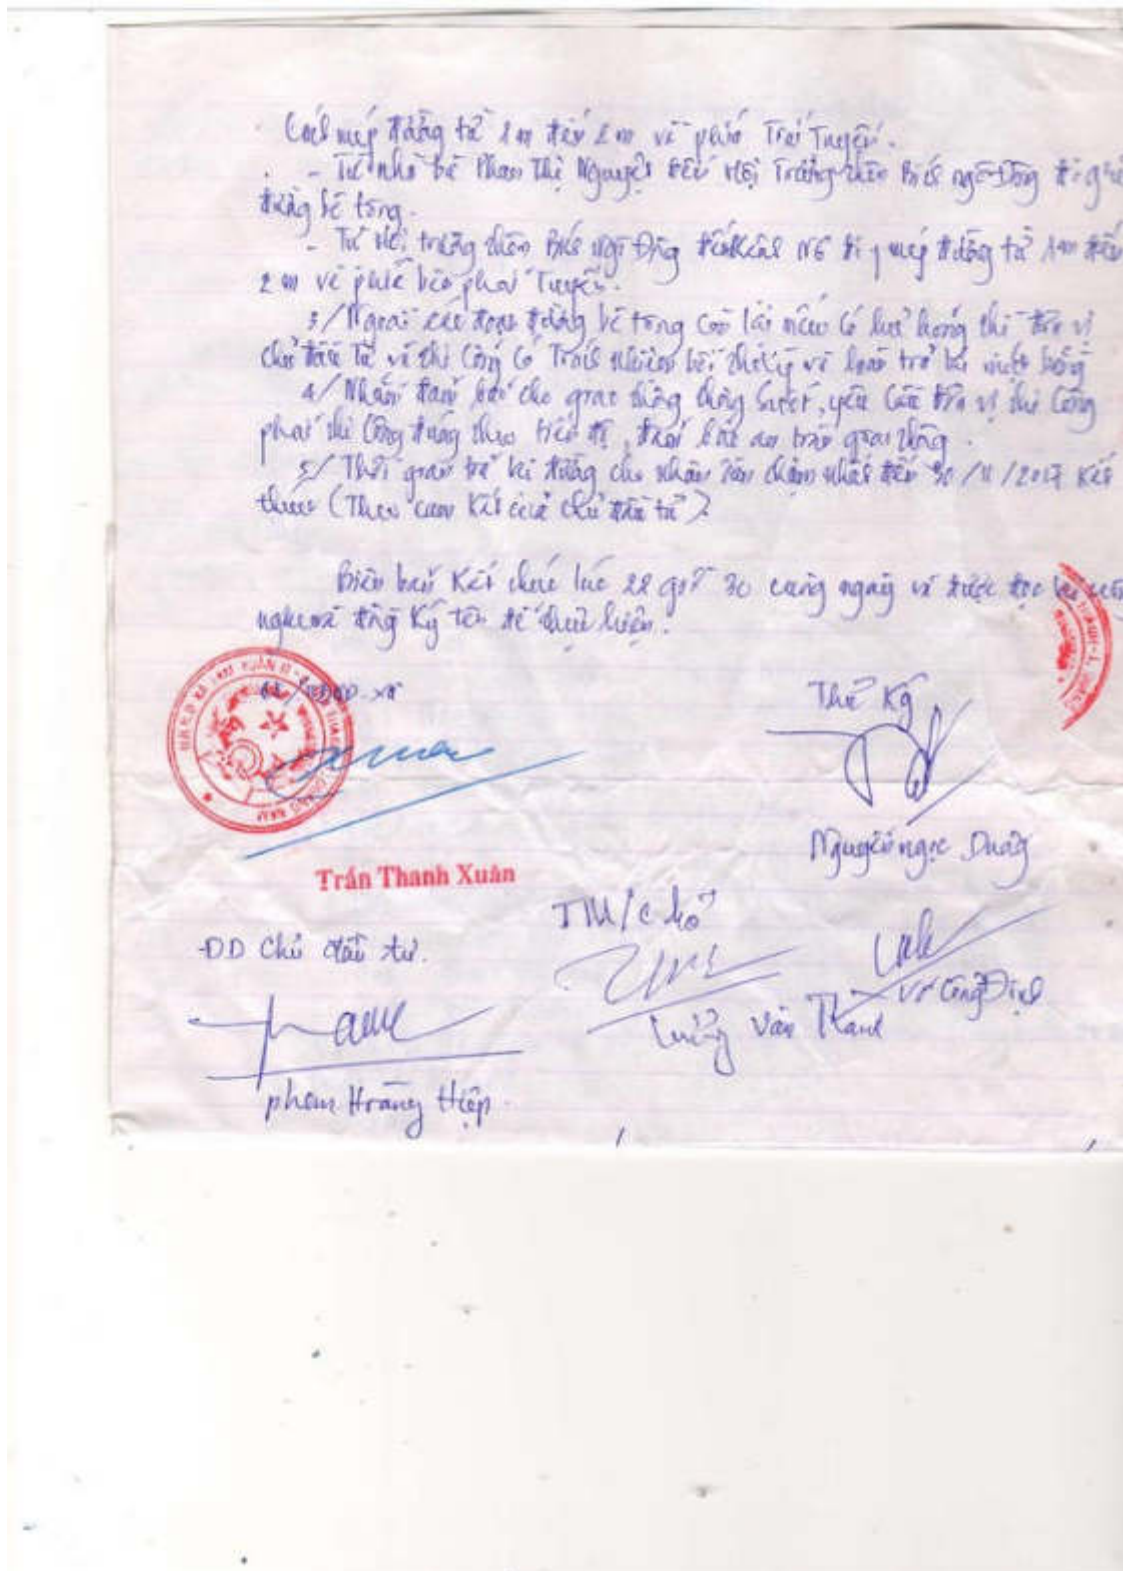 Cách mép đường từ 1m đến 2m về phía Trái Tuyến.
- Từ nhà bà Phan Thị Nguyệt đến Hội Trường thôn Bích Ngô Đông đi giữa
đường bê tông.
- Từ Hội trường thôn Bích Ngô Đông đến kênh N6 đi mép đường từ 1m đến
2m về phía bên phải Tuyến.
3/ Ngoài các đoạn đường bê tông còn lại nếu có hư hỏng thì đơn vị
chủ đầu Tư và thi Công có Trách nhiệm bồi thường và hoàn trả lại mặt bằng
4/ Nhằm đảm bảo cho giao thông thông suốt, yêu cầu đơn vị thi Công
phải thi Công đúng theo tiến độ, đảm bảo an toàn giao thông.
5/ Thời gian trả lại đường cho nhân dân chậm nhất đến 30/11/2017 Kết
thúc (Theo cam Kết của chủ đầu tư).
Biên bản Kết thúc lúc 22 giờ 30 cùng ngày và được đọc lại
nghe và đồng Ký tên để thực hiện.
Thư Ký
Trần Thanh Xuân
Nguyễn ngọc
TM/c hộ
ĐD Chủ đầu tư.
Võ Công Định
Văn Thanh
phạm Hoàng Hiệp